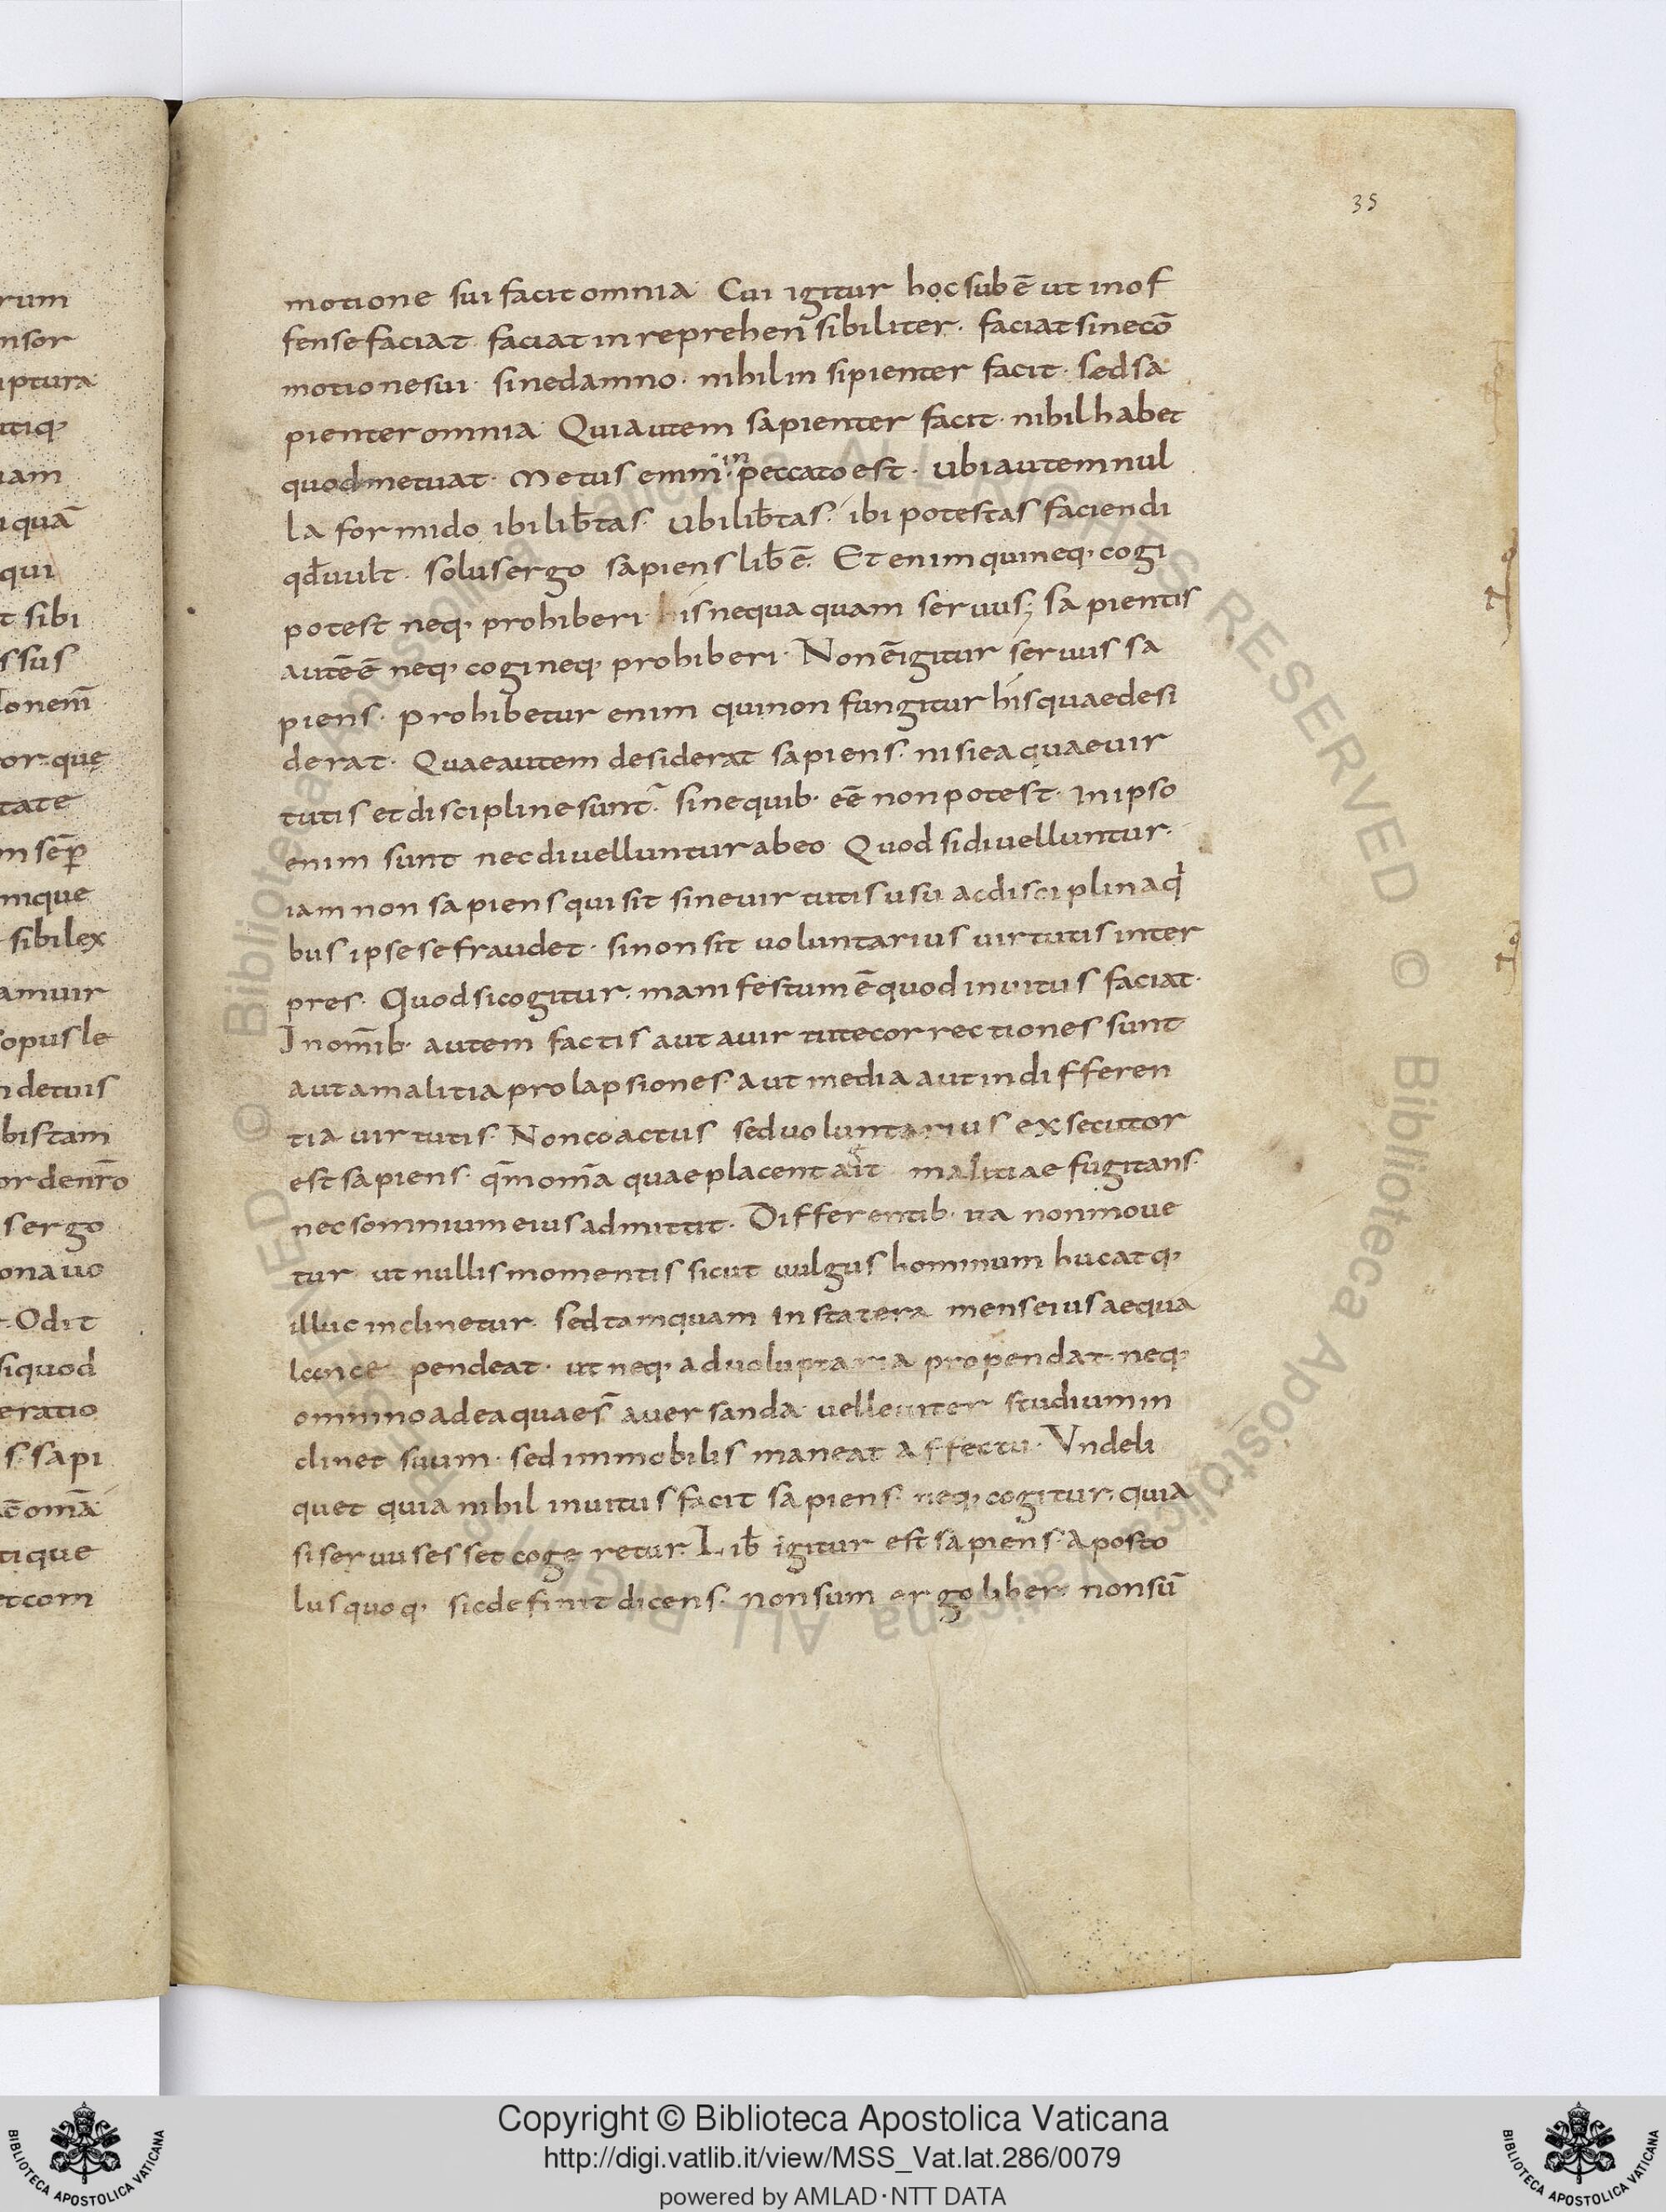 35
motione sui facit omnia Cui igitur hoc sub ē ut inof
fense faciat faciat inreprehen sibiliter. faciat sine cō
motione sui. sine damno. nihil in sipienter facit. sed sa
pienter omnia Qui autem sapienter facit. nihil habet
quod metuat. Metus enim in peccato est. ubi autem nul
la formido ibi lib̄tas. ubi lib̄tas. ibi potestas faciendi
qd̄ vult. solus ergo sapiens lib̄ ē. Et enim qui neq. cogi
potest neq. prohiberi his nequaquam servus; sapientis
autē ē neq. cogi neq. prohiberi. Non ē igitur servus sa
piens. Prohibetur enim qui non fungitur his quae desi
derat. Quae autem desiderat sapiens. nisi ea quae vir
tutis et discipline sunt. sine quib. eē non potest. in ipso
enim sunt nec divelluntur ab eo Quod si divelluntur.
iam non sapiens qui sit sine virtutis usu ac disciplina qi
bus ipse se fraudet. si non sit voluntarius virtutis inter
pres. Quod si cogitur. manifestum ē quod invitus faciat.
In om̄ib. autem factis aut a virtute correctiones sunt
aut a malitia prolapsiones. aut media aut indifferen
tia virtutis. Non coactus sed voluntarius exsecutor
est sapiens. qm̄ om̄a quae placent malitiae fugitans.
nec somnium eius admittit. Differentib. ita non move
tur ut nullis momentis sicut vulgus hominum huc atq.
illuc inclinetur. sed tamquam in statera mens eius aequa
lance pendeat. ut neq. ad voluptaria propendat. neq.
omnino ad ea quae s̄ aversanda vel leviter studium in
clinet suum. sed immobilis maneat affectu. Unde li
quet quia nihil invitus facit sapiens. neq. cogitur. quia
si servus esset cogeretur. Lib̄ igitur est sapiens. Aposto
lus quoq. sic definit dicens. Non sum ergo liber. non sū
rum
nsor
iptura
utiq.
uam
iquā
qui
t sibi
s sus
onem̄
or. que
tate
m sēp
nique
sibi lex
am vir
opus le
n de tuis
bis tam
or de nr̄o
s ergo
ona vo
. Odit
si quod
eratio
s. sapi
om̄a
tique
et com
© Biblioteca Apostolica Vaticana ALL RIGHTS RESERVED
© Biblioteca Apostolica Vaticana ALL RIGHTS RESERVED
Copyright © Biblioteca Apostolica Vaticana
http://digi.vatlib.it/view/MSS_Vat.lat.286/0079
powered by AMLAD·NTT DATA
BIBLIOTECA APOSTOLICA VATICANA
BIBLIOTECA APOSTOLICA VATICANA